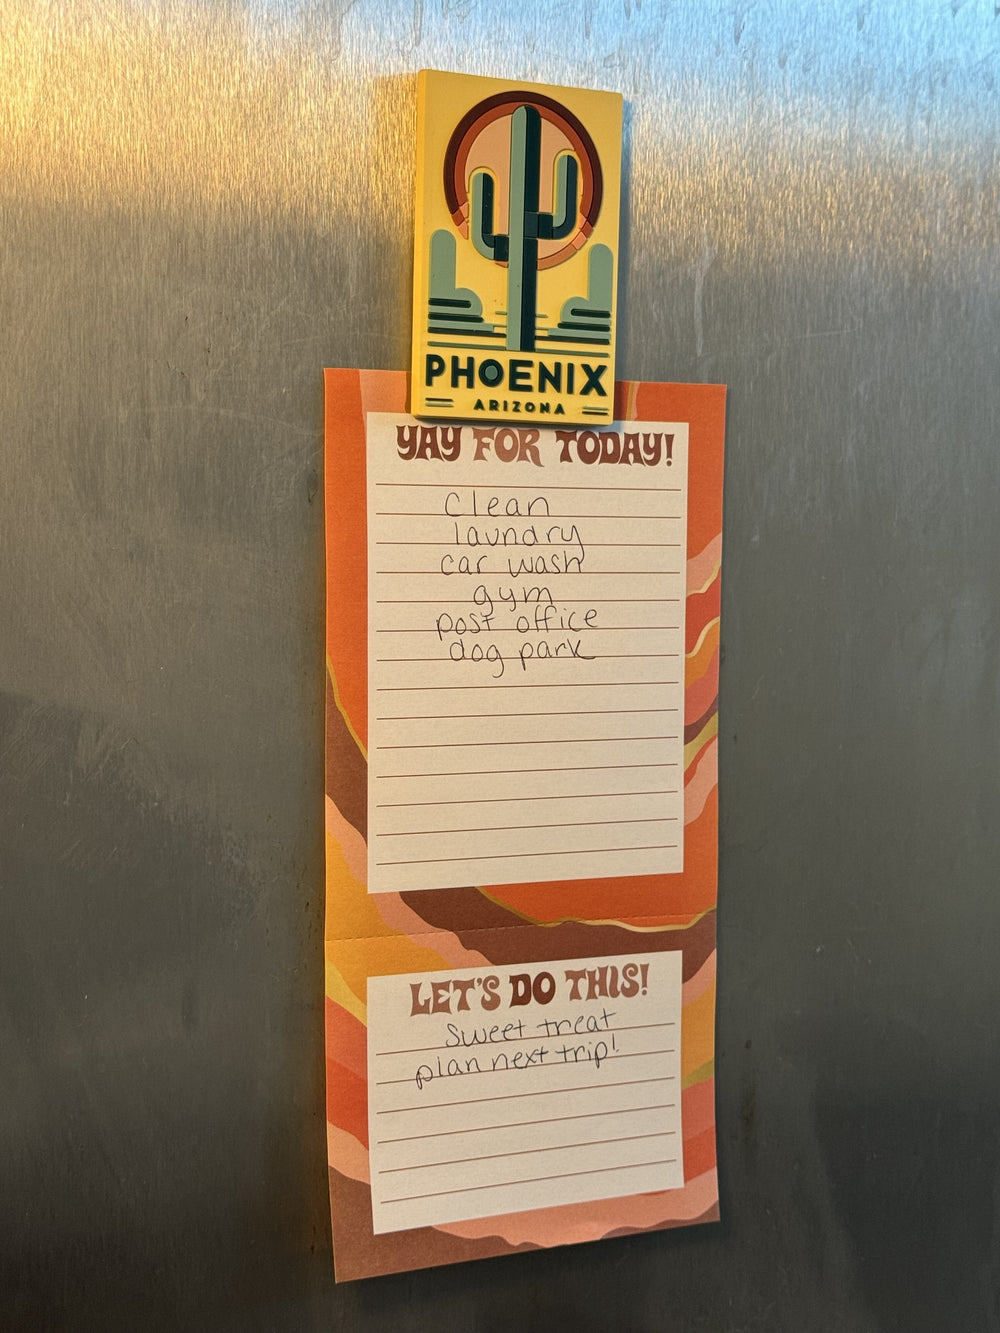 PHOENIX
ARIZONA
YAY FOR TODAY!
clean
laundry
car wash
gym
post office
dog park
LET'S DO THIS!
Sweet treat
plan next trip!